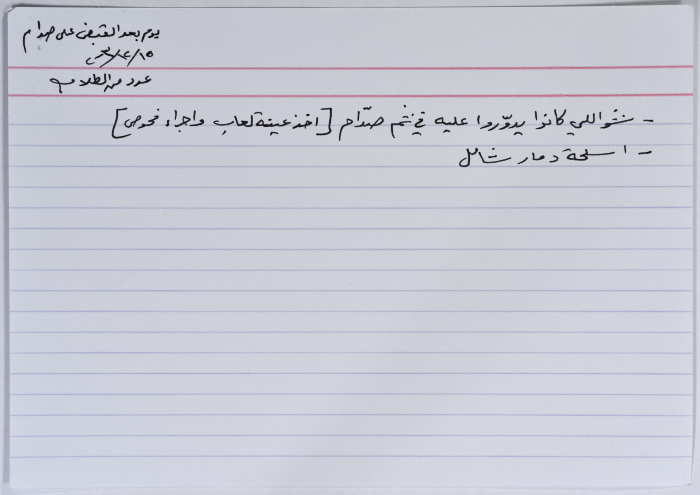 يوم بعد القبض على صدام
عدد من الطلاب
- شو اللي كانوا يدوّروا عليه في ثم صدّام [اخذ عينة لعاب واجراء فحوص]
- اسلحة دمار شامل